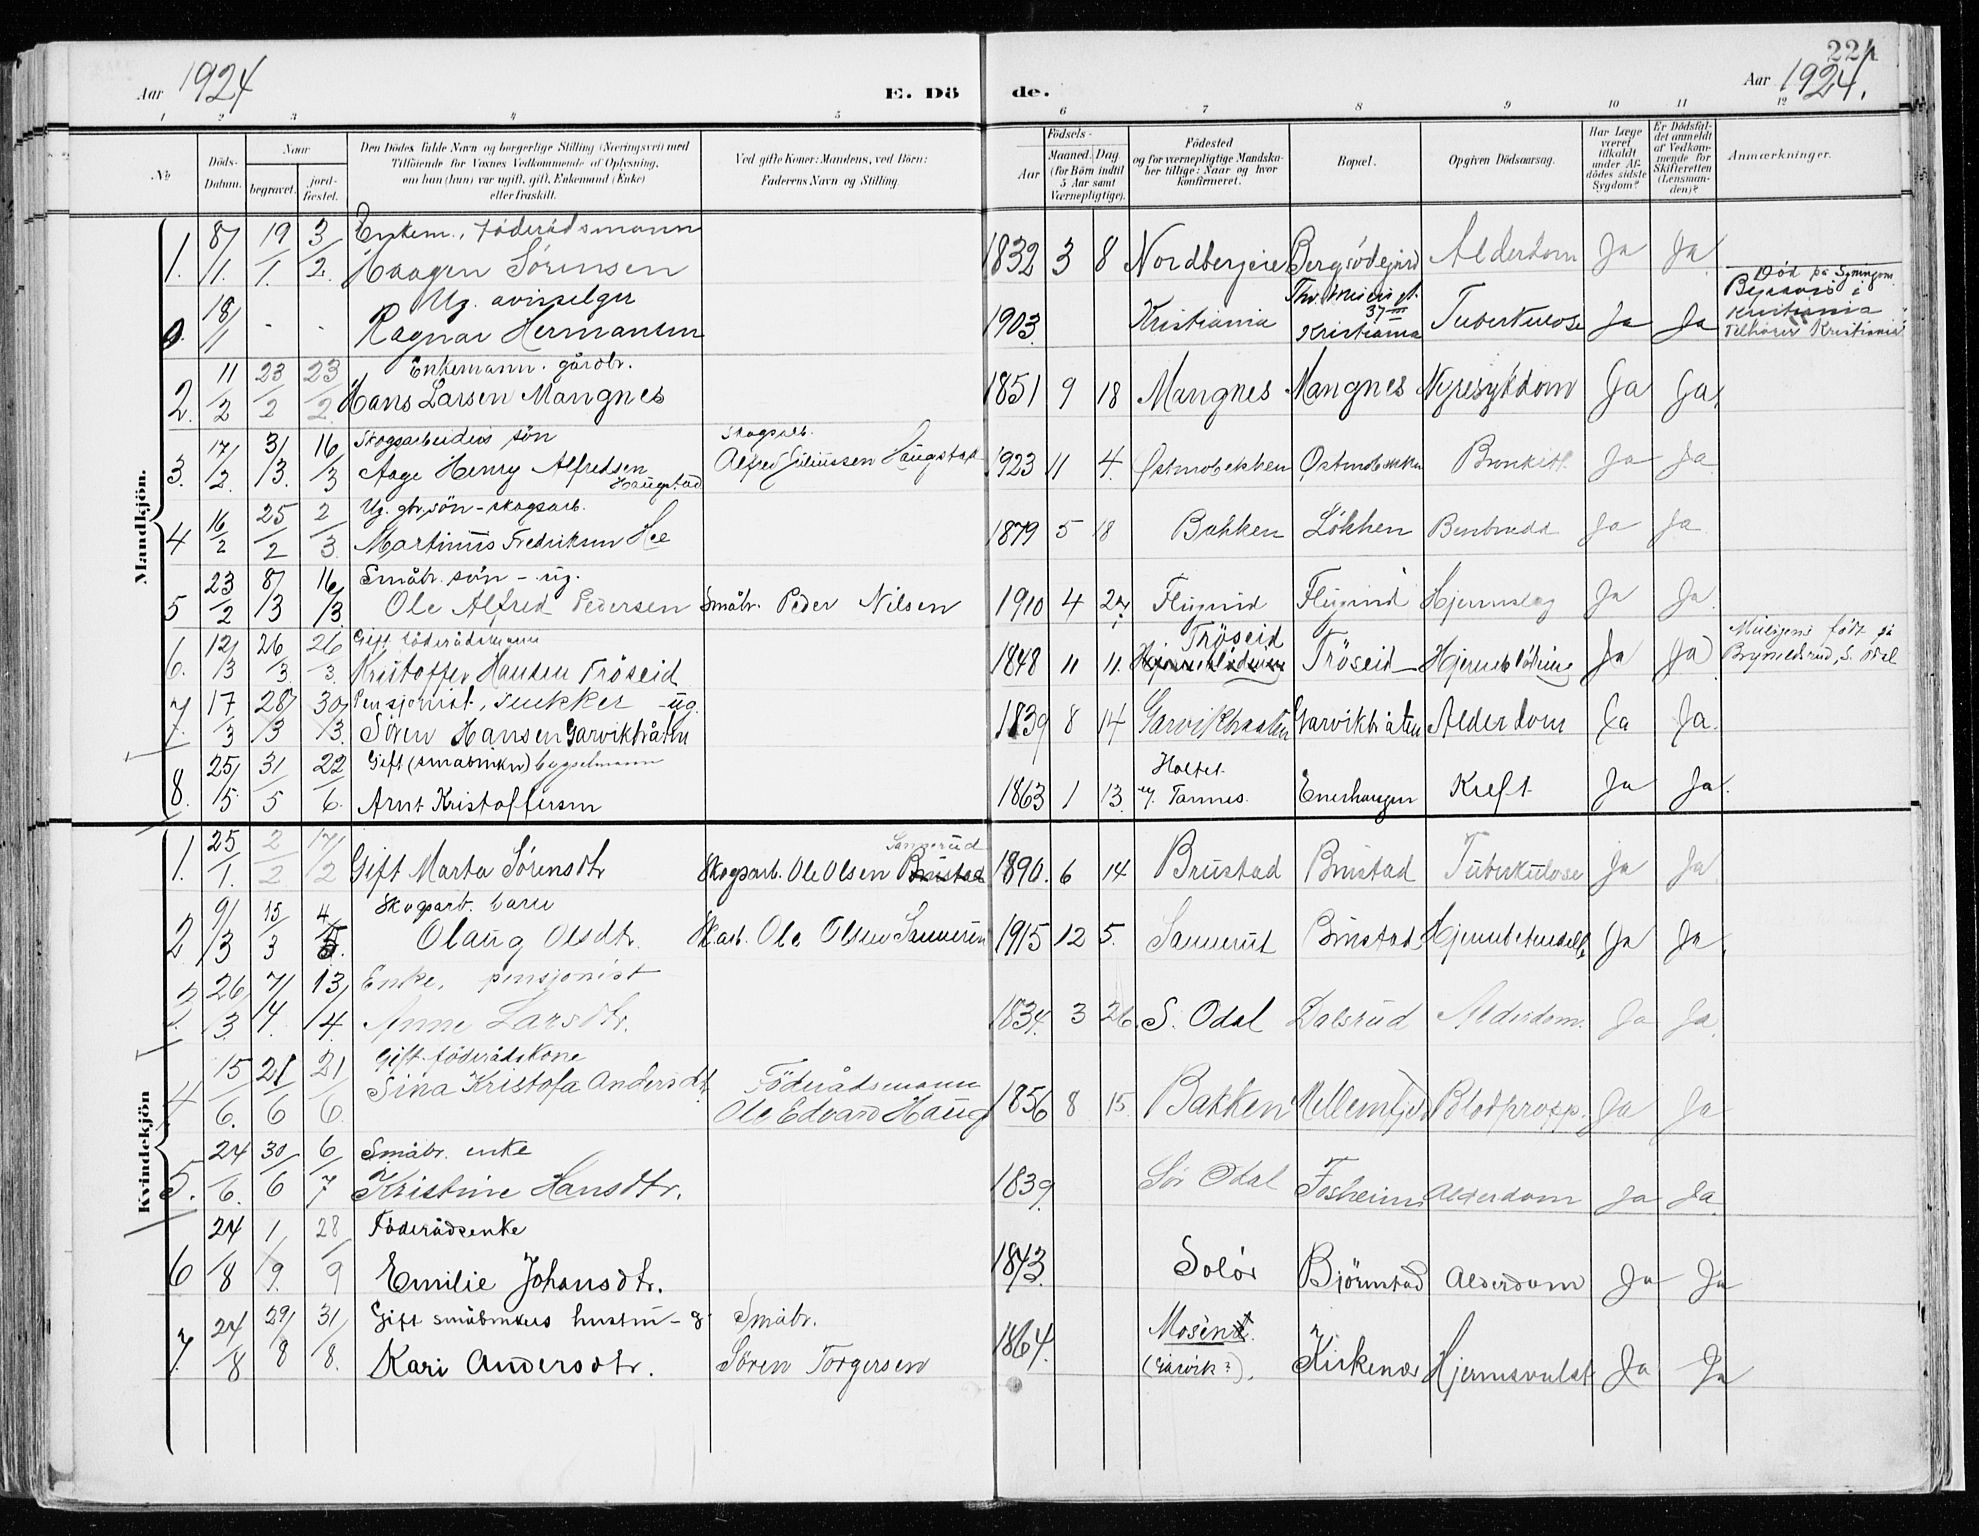 Aar 1924
E. Döde.
221
Aar 1924.
1 2 3 4 5 6 7 8 9 10 11 12
No
Döds-Datum.
Naar
begravet.
jord-fæstet.
Den Dödes fulde Navn og borgerlige Stilling (Næringsvei) med Tilföiende for Voxnes Vedkommende af Oplysning, om han (hun) var ugift, gift, Enkemand (Enke) eller fraskilt.
Ved gifte Koner: Mandens, ved Börn: Faderens Navn og Stilling.
Födsels-
Aar
Maaned. Dag
(for Börn indtil 5 Aar samt Værnepligtige).
Födested og for værnepligtige Mandskaber tillige: Naar og hvor konfirmeret.
Bopæl.
Opgiven Dödsaarsag.
Har Læge været tilkaldt under Afdödes sidste Sygdom?
Er Dödsfaldet anmeldt af Vedkommende for Skifteretten (Lensmanden)?
Anmærkninger.
Mandkjön.
1. 8/1. 19/1. 3/2. Enkem., föderådsmann
Haagen Sörensen 1832 3 8 Nordbergeie Bergsödegård Alderdom Ja Ja
0. 18/1 - - Ug. avisselger
Ragnar Hermansen 1903. Kristiania Thv. Meiers gt. 37 III Kristiania Tuberkulose Ja Ja Död på
i Kristiania
Tilhörer Kristiania
2. 11/2 23/2 23/2. Enkemann. gårdbr.
Hans Larsen Mangnes 1851 9 18 Mangnes Mangnes Nyresykdom Ja Ja.
3. 17/2. 31/3. 16/3 Skogsarbeiders sön
Aage Henry Alfredsen Haugstad Skogsarb. Alfred Juliussen Haugstad 1923 11 4. Östmobekken Östmobekken Bronkitt Ja Ja
4 16/2 25/2 2/3. Ug. gbr.sön - skogsarb.
Martinus Fredriksen Hee 1879 5 18 Bakken Lökken Benbrudd Ja Ja
5 23/2 8/3 16/3. Småbr. sön - ug.
Ole Alfred Pedersen Småbr. Peder Nilsen 1910 4 27 Flugrud Flugrud Hjerneslag Ja Ja
6. 12/3 26/3. 26/3. Gift föderådsmann
Kristoffer Hansen Tröseid 1848 11 11. Tröseid Tröseid Hjerneblödning Ja Ja Muligens födt på
Bryneldsrud, S. Odal
7. 17/3 28/3 30/3. Pensjonist, snekker - ug.
Sören Hansen Garvikbråten 1839 8 14 Garvikbraaten Garvikbråten Alderdom Ja Ja.
8. 25/5 31/5 22/6. Gift (småbruker) bygselmann
Arnt Kristoffersen 1863 1 13. Holtet u. Tannes. Enerhaugen Kreft Ja Ja.
Kvindekjön
1. 25/1. 2/2 17/2 Gift Marta Sörensdtr Skogsarb. Ole Olsen Brustad Sannerud 1890. 6 14 Brustad Brustad Tuberkulose Ja Ja
2 9/3 15/3 4/5. Skogsarb. barn
Olaug Olsdtr. Sk.arb. Ole Olsen Sannerud 1915 12 5. Sannerud Brustad Hjernebetendelse Ja Ja.
3. 26/3. 7/4. 13/4. Enke, pensjonist
Anne Larsdtr. 1834. 3 26. S. Odal Dalsrud Alderdom. Ja Ja.
4 15/6. 21/6 21/6. Gift föderådskone
Sina Kristofa Andersdtr. Föderådsmann
Ole Edvard Haug 1856 8 15. Bakken Mellemfjeld Blodpropp. Ja Ja
5. 24/6. 30/6 6/7 Småbr. enke
Kristine Hansdtr. 1839. Sör Odal Fosheim Alderdom Ja Ja.
6 24/8 1/9. 28/9 Föderådsenke
Emilie Johansdtr. 1843. Solör Björnstad Alderdom Ja Ja
7. 24/8 29/8 31/8. Gift småbrukers hustru - g. Småbr.
Kari Andersdtr. Sören Torgersen 1864. Mosen.
(Garvik?). Kirkenær Hjernesvulst Ja Ja